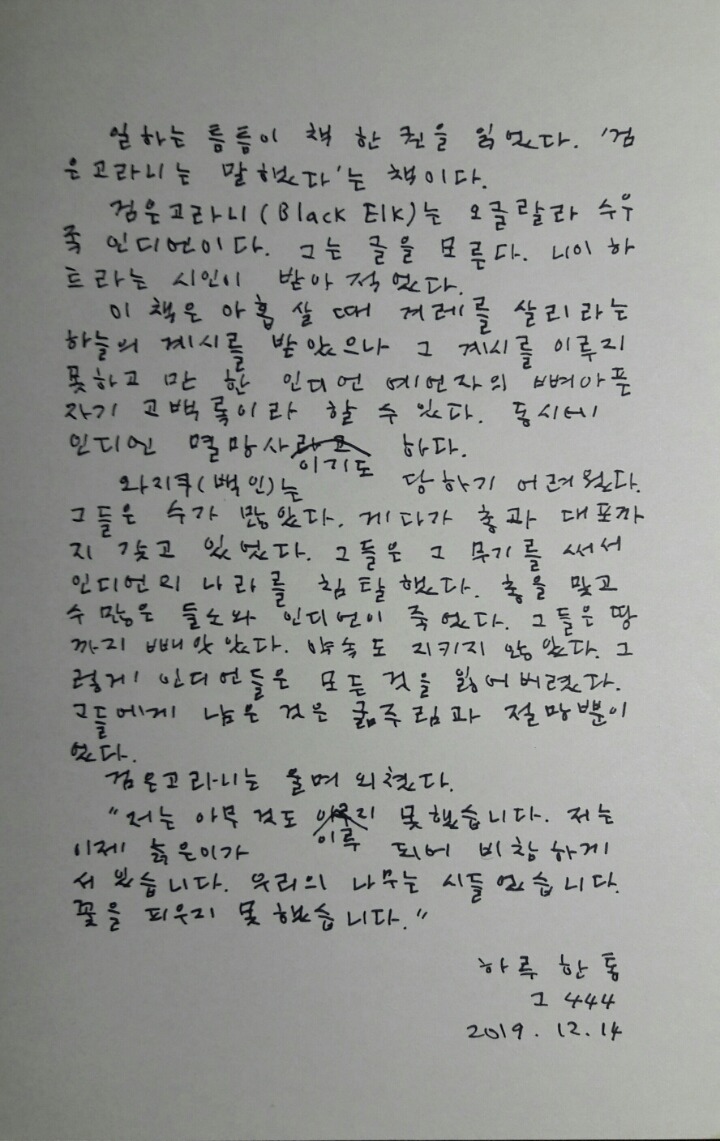 일하는 틈틈이 책 한 권을 읽었다. '검
은고라니는 말했다'는 책이다.
검은고라니(Black Elk)는 오글랄라 수우
족 인디언이다. 그는 글을 모른다. 니이하
트라는 시인이 받아 적었다.
이 책은 아홉 살 때 겨레를 살리라는
하늘의 계시를 받았으나 그 계시를 이루지
못하고 만 한 인디언 예언자의 뼈아픈
자기 고백록이라 할 수 있다. 동시에
인디언 멸망사이기도 하다.
와지쿠(백인)는 당하기 어려웠다.
그들은 수가 많았다. 게다가 총과 대포까
지 갖고 있었다. 그들은 그 무기를 써서
인디언의 나라를 침탈했다. 총을 맞고
수많은 들소와 인디언이 죽었다. 그들은 땅
까지 빼앗았다. 약속도 지키지 않았다. 그
렇게 인디언들은 모든 것을 잃어버렸다.
그들에게 남은 것은 굶주림과 절망뿐이
었다.
검은고라니는 울며 외쳤다.
"저는 아무 것도 이루지 못했습니다. 저는
이제 늙은이가 되어 비참하게
서 있습니다. 우리의 나무는 시들었습니다.
꽃을 피우지 못했습니다."
하루 한 통
그 444
2019. 12. 14